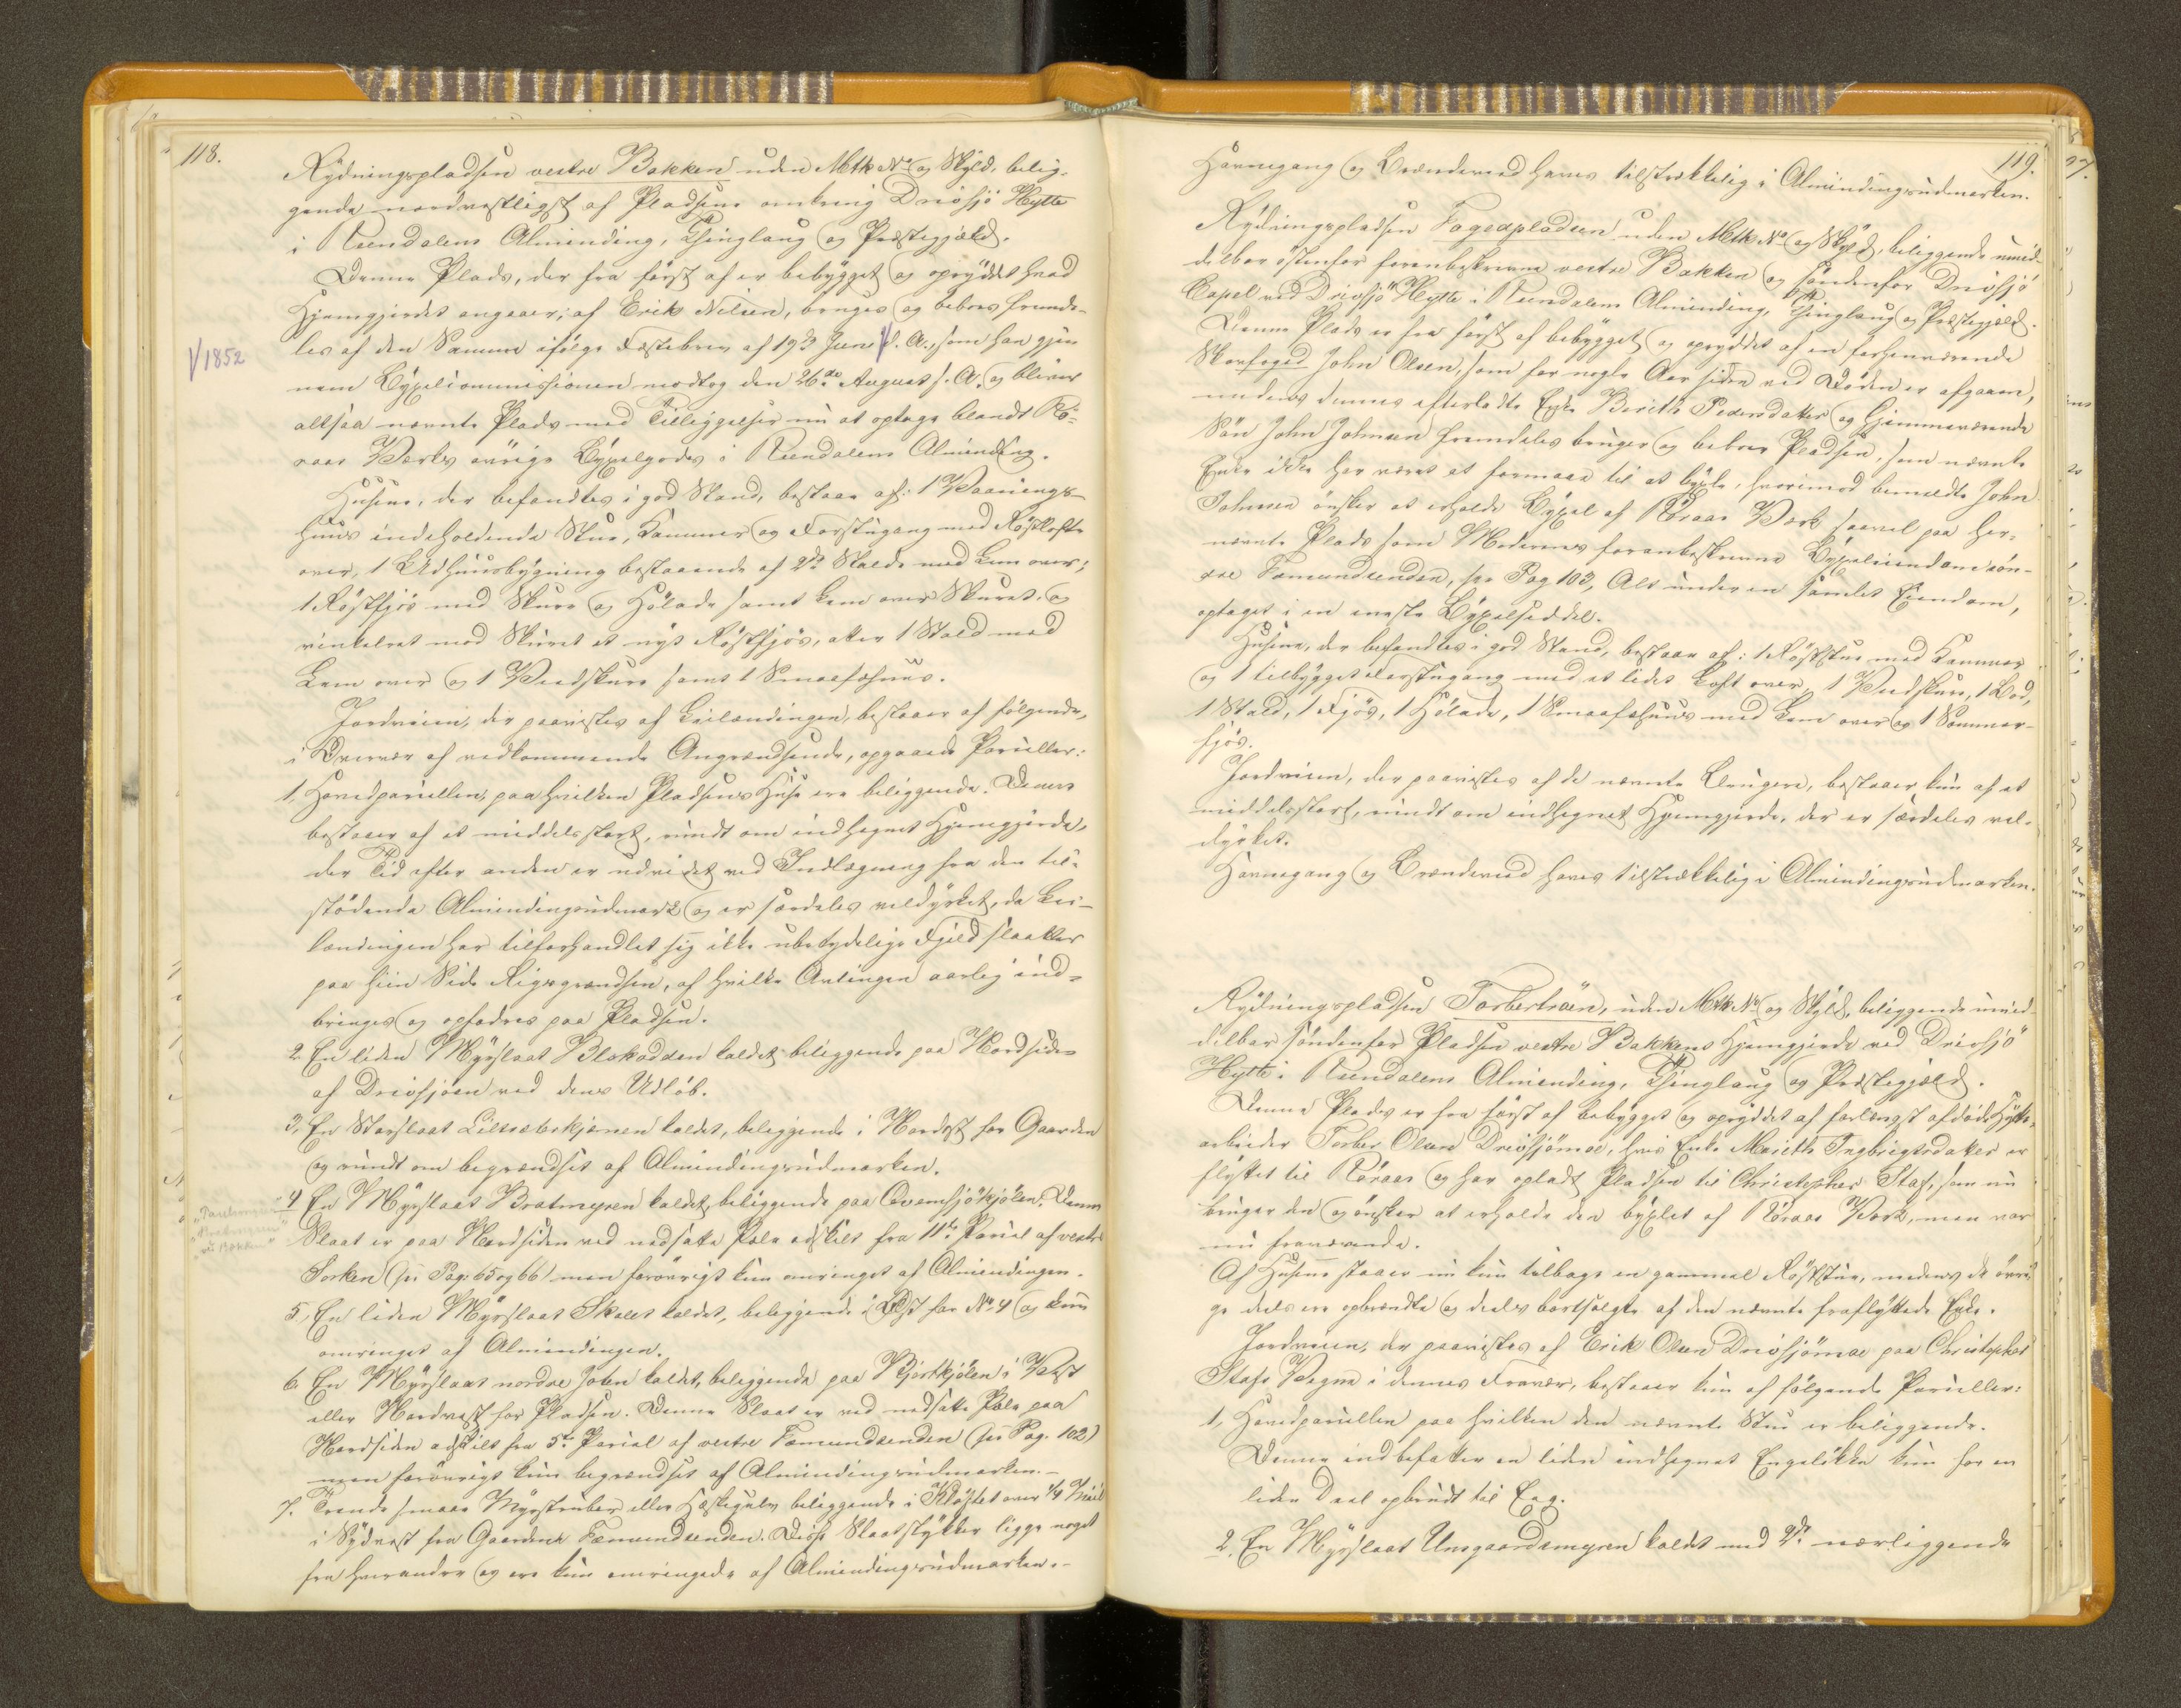 118.
Rÿdningspladsen vestre Bakken uden Mtk No og Skÿld, belig-
gende nordvestligst af Pladsene omkring Drevsjö Hytte
i Rendalens Alminding, Thinglaug og Præstegjæld.
Denne Plads, der fra först af er bebÿgget og oprÿddet hvad
Hjemgjerdet angaaer, af Erik Nilsen, bruges og beboes fremde-
les af den Samme ifölge Fæstebrev af 193 Juni f. A., som han gjen
√1852
nem Bÿxelcommissionen modtog den 26de August s. A. og bliver
altsaa nævnte Plads med Tilliggelser nu at optage blandt Rö-
raas Værks övrige Bÿxelgods i Rendalens Alminding.
Husene, der befandtes i god Stand, bestaae af: 1 Vaanings-
huus indeholdende Stue, Kammer og Forstugang med Röstlofte
over, 1 Udhuusbÿgning bestaaende af 2de Stalde med Lem over;
1 Röstfjös med Skure og Hölade samt Lem over Skuret, og
vinkelret mod Skuret et nÿt Röstfjös, atter 1 Stald med
Lem over og 1 Vedskure samt 1 Smaafæhuus.
Jordveien, der paavistes af Leilændingen, bestaaer af fölgende,
i Overvær af vedkommende Angrændsende, opgaaede Parceller:
1, Hovedparcellen, paa hvilken Pladsens Huse ere beliggende. Denne
bestaaer af et middelsstort, rundt om indhegnet Hjemgjerde,
der Tid efter anden er udvidet ved Indlægning fra den til-
stödende Almindingsudmark og er særdeles veldÿrket, da Lei-
lændingen har tilforhandlet sig ikke ubetydelige Fjeldslaatter
paa hiin Side Rigsgrændsen, af hvilke Avlingen aarlig ind-
bringes og opfodres paa Pladsen.
2. En liden Mÿrslaat Blokodden kaldet beliggende paa Nordsiden
af Drevsjöen ved dens Udlöb.
3, En Storslaat Lillesæterkjernen kaldet, beliggende i Nordost for Gaarden
og rundt om begrændset af Almindingsudmarken.
4 En Mÿrslaat Bratmyren kaldet, beliggende paa Ovensjökjölen. Denne
"Bratmyren"
Slaat er paa Nordsiden ved nedsatte Pæle adskilt fra 11te Parcel af vestre
Sorken (see Pag: 65 og 66) men forövrigt kun omringet af Almindingen.
5, En liden Mÿrslaat Skaltet kaldet, beliggende i Öst for No 4 og kun
omringet af Almindingen.
6. En Mÿrslaat nordre Joten kaldet, beliggende paa Bjertkjölen i Vest
eller Nordvest for Pladsen. Denne Slaat er ved nedsatte Pæle paa
Nordsiden adskilt fra 5te Parcel af vestre Fæmundsenden (see Pag. 102)
men forövrigt kun begrændset af Almindingsudmarken.-
7. Trende smaae Mÿrstrüber eller Hestegulv beliggende i Klöftet over 1/4 Miil
i Sÿdvest fra Gaardene Fæmundsenden. Disse Slaatstÿkker ligge noget
fra hverandre og ere kun omringede af Almindingsudmarken.-
119.
Havnegang og Brændeved haves tilstrækkelig i Almindingsudmarken.
Rÿdningspladsen Fogedpladsen uden Mtk No og Skÿld, beliggende umid-
delbar östenfor foranbeskrevne vestre Bakken og söndenfor Drevsjö
Capel ved Drevsjö Hytte i Rendalens Alminding, Thinglaug og Præstegjæld.
Denne Plads er fra först af bebÿgget og oprÿddet af en forhenværende
Skovfoged John Olsen, som for nogle Aar siden ved Döden er afgaaen,
medens dennes efterladte Enke Berith Pedersdatter og hjemmeværende
Sön John Johnsen fremdeles bruger og beboer Pladsen, som nævnte
Enke ikke har været at formaae til at bÿxle, hvorimod bemeldte John
Johnsen önsker at erholde Bÿxel af Röraas Værk saavel paa her-
nævnte Plads som Moderens foranbeskrevne Bÿxeleiendom sön-
dre Fæmundsenden, see Pag 103, Alt under en samlet Eiendom,
optaget i en eneste Bÿxelseddel.
Husene, der befandtes i god Stand, bestaae af: 1 Röststue med Kammer
og 1 tilbÿgget Forstugang med et lidet Loft over, 1 Vedskure, 1 Bod,
1 Stald, 1 Fjös, 1 Hölade, 1 Smaafæhuus med Lem over og 1 Sommer-
fjös.
Jordveien, der paavistes af de nævnte Brugere, bestaaer kun af et
middelsstort, rundt om indhegnet Hjemgjerde, der er særdeles vel-
dÿrket.
Havnegang og Brændeved haves tilstrækkelig i Almindingsudmarken.
Rÿdningspladsen Torbertröen, uden Mtk No og Skÿld, beliggende umid-
delbar söndenfor Pladsen vestre Bakkens Hjemgjerde ved Drevsjö
Hytte i Rendalens Alminding, Thinglaug og Præstegjæld.
Denne Plads er fra först af bebÿgget og oprÿddet af forlængst afdöde Hytte-
arbeider Torber Olsen Drevsjömoe, hvis Enke Marith Ingbrigtsdatter er
flÿttet til Röraas og har opladt Pladsen til Christopher Staf, som nu
bruger den og önsker at erholde den bÿxlet af Röraas Værk, men var
nu fraværende.
Af Husene staaer nu kun tilbage en gammel Röststue, medens de övri-
ge deels ere opbrændte og deels bortsolgte af den nævnte fraflÿttede Enke.
Jordveien, der paavistes af Erik Olsen Drevsjömoe paa Christopher
Stafs Vegne i dennes Fravær, bestaaer kun af fölgende Parceller:
1, Hovedparcellen paa hvilken den nævnte Stue er beliggende.
Denne indbefatter en liden indhegnet Engelökke kun for en
liden Deel opbrudt til Eng.
2, En Mÿrslaat Unsgaardsmyren kaldet med 2de nærliggende